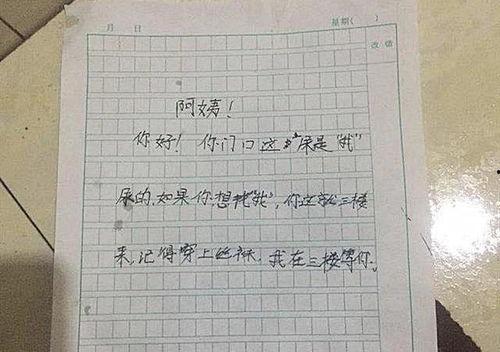 月 日 星期( )
改错
阿姨!
你好!你门口这尿是"我"
尿的,如果你想找"我",你这就三楼
来,记得穿上丝袜.我在三楼等你。